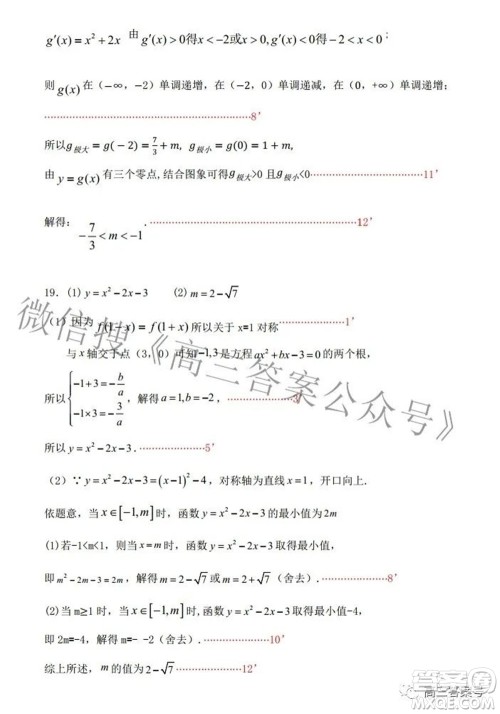 g′(x)=x²+2x 由 g′(x)>0得x<-2或x>0,g′(x)<0得-2<x<0;
则 g(x) 在（-∞，-2）单调递增，在（-2，0）单调递减，在（0，+∞）单调递增，
……………………………………8′
所以g极大=g(-2)=7/3+m, g极小=g(0)=1+m,
由 y=g(x) 有三个零点,结合图象可得g极大>0 且g极小<0……………………11′
解得： -7/3<m<-1 .……………………………………12′
19. (1) y=x²-2x-3 (2) m=2-√7
(1) 因为 f(1-x)=f(1+x) 所以关于 x=1 对称……………1′
与 x 轴交于点（3，0）可知-1,3是方程 ax²+bx-3=0 的两个根,
所以 {-1+3=-b/a, -1×3=-3/a ，解得 a=1,b=-2，……………3′
所以 y=x²-2x-3.……………5′
（2）∵ y=x²-2x-3=(x-1)²-4，对称轴为直线 x=1，开口向上.
依题意，当 x∈[-1,m] 时，函数 y=x²-2x-3 的最小值为 2m
(1)若-1<m<1，则当 x=m 时，函数 y=x²-2x-3 取得最小值，
即 m²-2m-3=2m，解得 m=2-√7 或 m=2+√7（舍去）.……………………8′
(2)当 m≥1 时，当 x∈[-1,m] 时,函数 y=x²-2x-3 取得最小值-4,
即 2m=-4，解得 m=- -2（舍去）.……………10′
综上所述，m 的值为 2-√7……………12′
微信搜《高三答案公众号》
高三答案号
答案圈
MXQE.COM